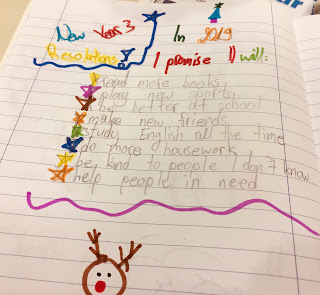 New Year's
Resolutions
In 2019
I promise I will:
read more books
play new sports
be better at school
make new friends
study English all the time
do more housework
be kind to people I don't know
help people in need